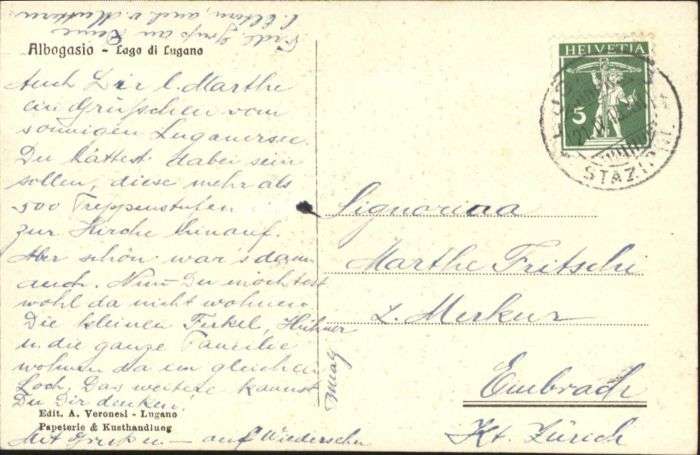 Albogasio - Lago di Lugano
Auch Dir l. Marthe
ein Grüsschen vom
sonnigen Luganersee.
Du hättest dabei sein
sollen, diese mehr als
500 Treppenstufen
zur Kirche hinauf.
Aber schön war's dann
auch. Nun Du möchtest
wohl da nicht wohnen.
Die kleinen Ferkel, Hühner
u. die ganze Familie
wohnen da im gleichen
Loch. Das weitere kannst
Du Dir denken.
Edit. A. Veronesi - Lugano
Papeterie & Kusthandlung
Mit Grüssen — auf Wiedersehn
Gruss an Deine
l. Eltern, auch v. Muttern
HELVETIA
5
STAZ
Signorina
Marthe Fritschi
z. Merkur
Embrach
Kt. Zürich